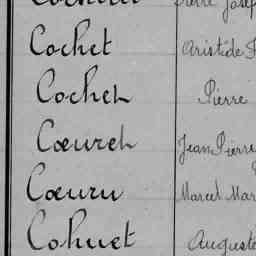 Cochet Aristide
Cochet Pierre
Cœuret Jean Pierre
Cœuru Marcel Mar
Cohuet Auguste